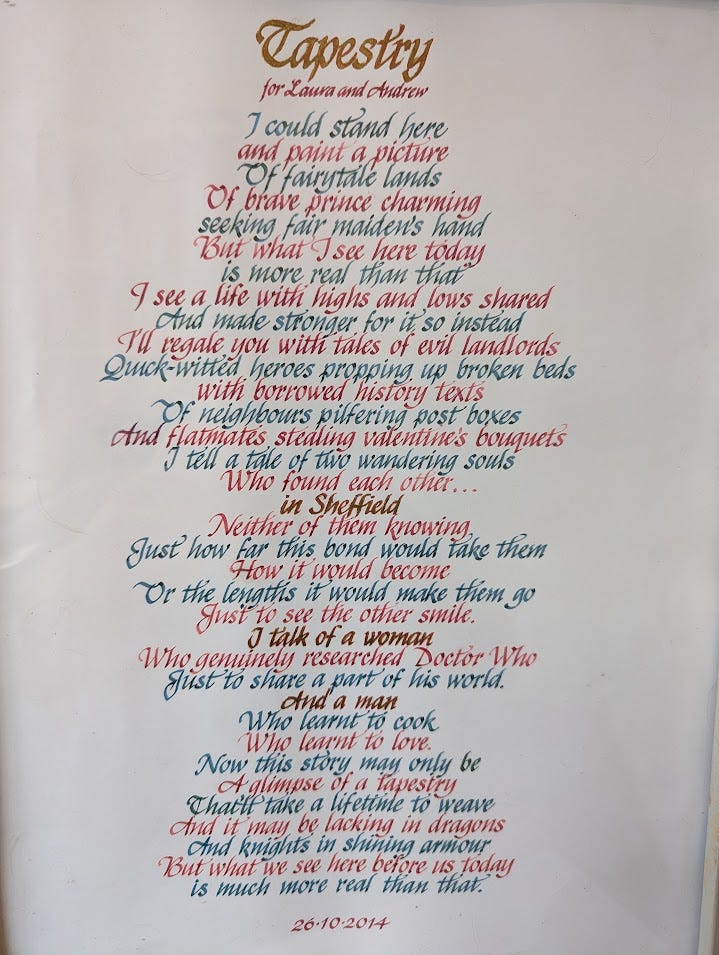 Tapestry
for Laura and Andrew
I could stand here
and paint a picture
Of fairytale lands
Of brave prince charming
seeking fair maiden's hand
But what I see here today
is more real than that
I see a life with highs and lows shared
And made stronger for it so instead
I'll regale you with tales of evil landlords
Quick-witted heroes propping up broken beds
with borrowed history texts
Of neighbours pilfering post boxes
And flatmates stealing valentine's bouquets
I tell a tale of two wandering souls
Who found each other...
in Sheffield
Neither of them knowing
Just how far this bond would take them
How it would become
Or the lengths it would make them go
Just to see the other smile.
I talk of a woman
Who genuinely researched Doctor Who
Just to share a part of his world.
And a man
Who learnt to cook
Who learnt to love.
Now this story may only be
A glimpse of a tapestry
That'll take a lifetime to weave
And it may be lacking in dragons
And knights in shining armour
But what we see here before us today
is much more real than that.
26·10·2014